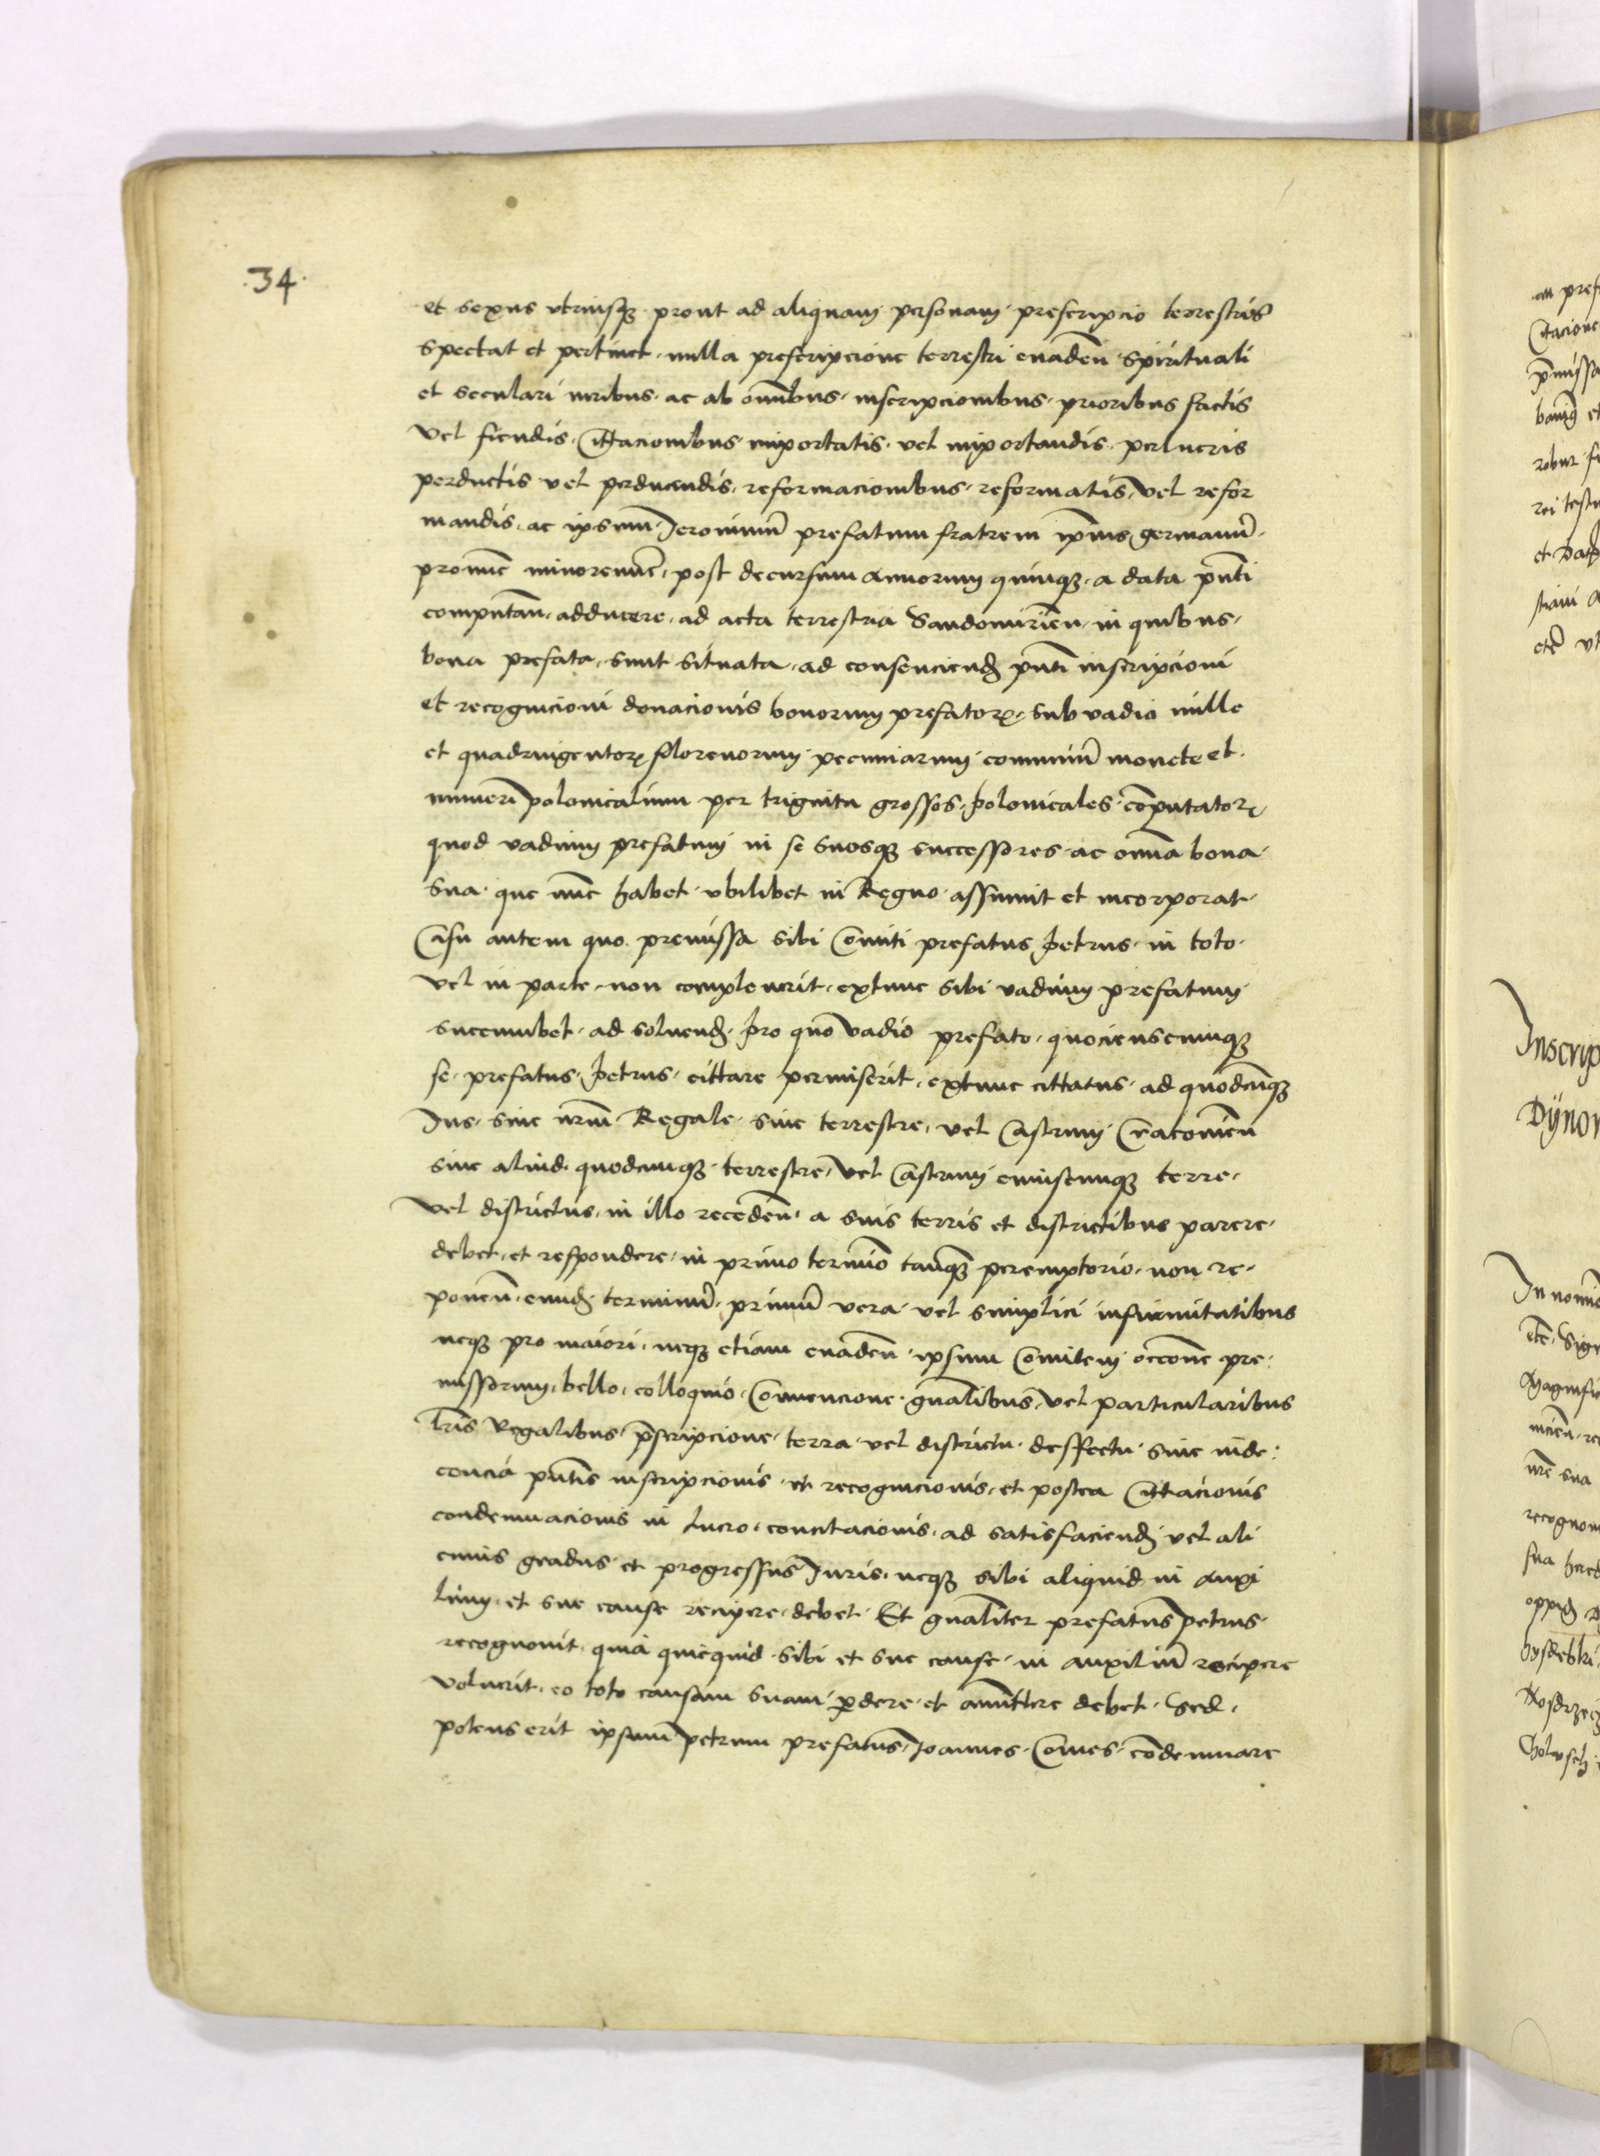 .34.
et sexus vtriusqʒ prout ad aliquam personam prescripcio terrestris
spectat et pertinet nulla prescripcione terrestri euadeñ spirituali
et seculari iuribus ac ab om̃ibus inscripcionibus prioribus factis
vel fiendis Cittacionibus importatis vel importandis perlucris
perductis vel perducendis reformacionibus reformatis vel refor
mandis ac ipsum Jeronimũ prefatum fratrem ip̃ius germanũ
pronũc minorenñe post decursum annorum quinqʒ a data p̃nti
computañ adducere ad acta terrestria Sandomirieñ in quibus
bona prefata sunt situata ad consenciendʒ p̃nti inscripcioni
et recognicioni donacionis bonorum prefatorꝝ sub vadio mille
et quadringentorꝝ florenorum pecuniarum communiũ monete et
numeri polonicalium per triginta grossos polonicales cõputatorꝝ
quod vadium prefatum in se suosqʒ successores ac om̃ia bona
sua que nũc habet vbilibet in Regno assumit et incorporat
Casu autem quo premissa sibi Comiti prefatus petrus in toto
vel in parte non compleuerit extunc sibi vadium prefatum
succumbet ad soluendʒ pro quo vadio prefato quocienscumqʒ
se prefatus petrus cittare permiserit extunc cittatus ad quodcũqʒ
Jus siue nr̃m Regale siue terrestre vel Castrum Cracouieñ
siue aliud quodcumqʒ terrestre vel Castrum cuiuscumqʒ terre
vel districtus in illo recedeñ a suis terris et districtibus parere
debet et respondere in primo termino tanqʒ peremptorio non re
poneñ eundʒ terminũ primũ vera vel simplici infirmitatibus
neqʒ pro maiori neqʒ etiam euadeñ ipsum Comitem occõne pre
missorum bello colloquio Conuencione gñalibus vel particularibus
lr̃is Regalibus p̃scripcione terra vel districtu deffectu siue inde
cencia p̃ntis inscripcionis et recognicionis et postea Cittacionis
condemnacionis in lucro concitacionis ad satisfaciendʒ vel ali
cuius gradus et progressus Juris neqʒ sibi aliquid in auxi
lium et sue cause recipere debet Et gñaliter prefatus petrus
recognouit quia quicquid sibi et sue cause in auxiliũ recipere
voluerit eo toto causam suam ꝑdere et amittere debet Sed
potens erit ipsum petrum prefatus Joannes Comes cõdemnare
Inscrip
Dÿnow
In nomine